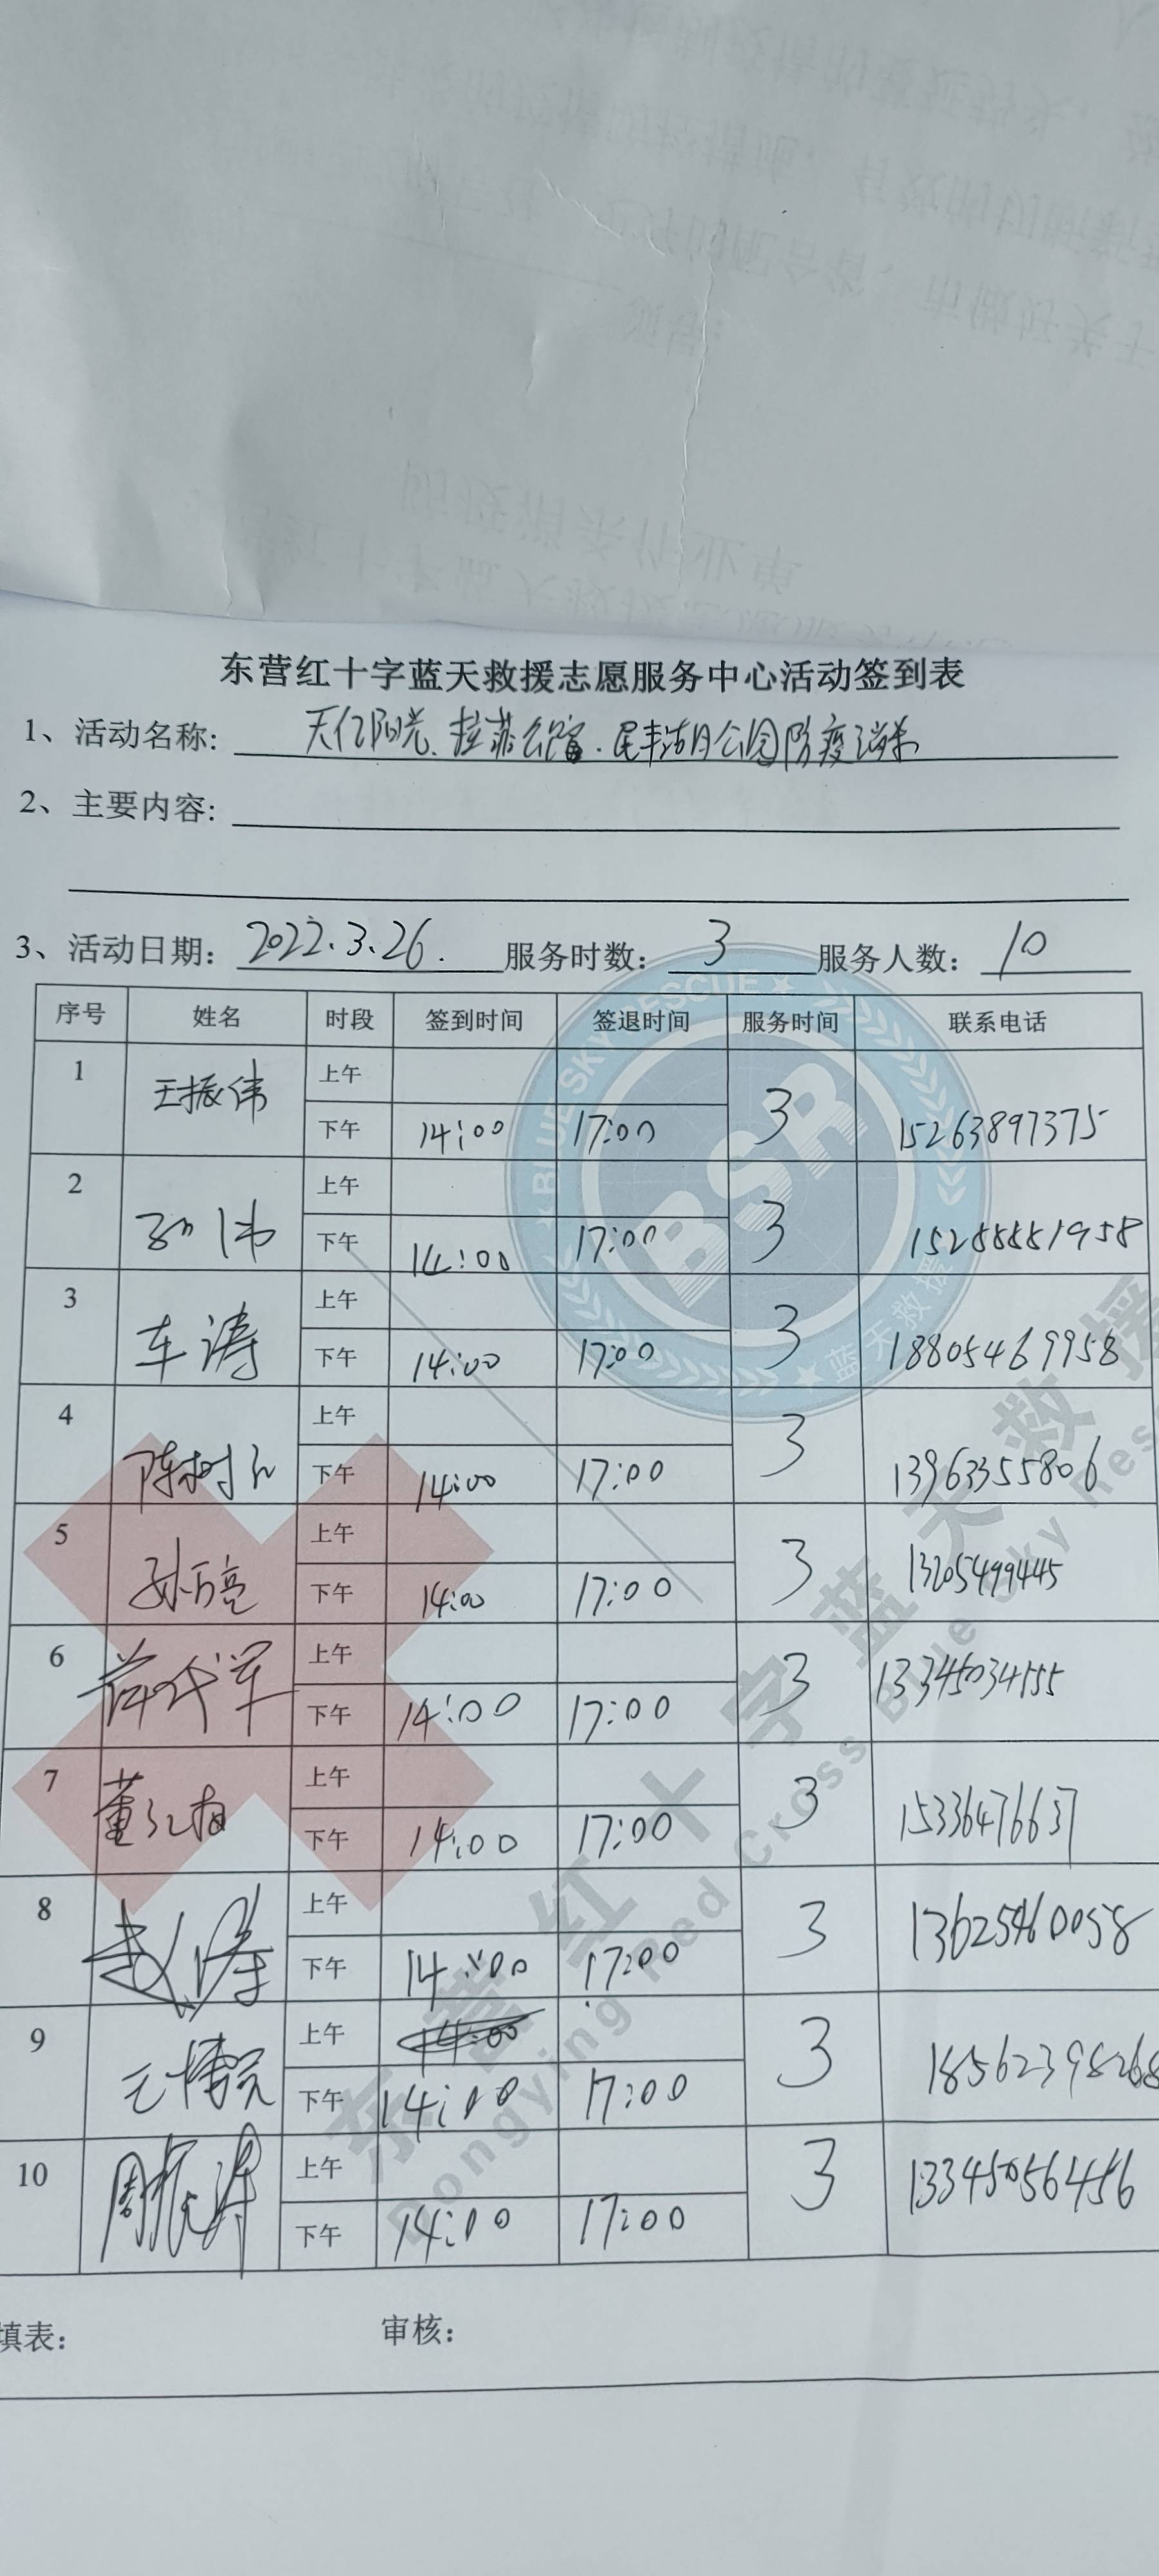 东营红十字蓝天救援志愿服务中心活动签到表
1、活动名称: 天亿阳光、拉菲公馆、民丰湖公园防疫消杀
2、主要内容:
3、活动日期: 2022.3.26. 服务时数: 3 服务人数: 10
序号 姓名 时段 签到时间 签退时间 服务时间 联系电话
1 王振伟 上午
下午 14:00 17:00 3 15263897375
2 上午
下午 14:00 17:00 3
3 车涛 上午
下午 14:00 17:00 3 18805469958
4 陈树 上午
下午 14:00 17:00 3 13963355806
5 孙万亮 上午
下午 14:00 17:00 3 13205499445
6 上午
下午 14:00 17:00 3
7 董红梅 上午
下午 14:00 17:00 3 15336476637
8 赵涛 上午
下午 14:00 17:00 3 13625460058
9 上午 14:00
下午 14:00 17:00 3 18562398268
10 周振涛 上午
下午 14:00 17:00 3
填表:
审核:
BLUE SKY RESCUE
BSR
蓝天救援
东营红十字蓝天救援
Dongying Red Cross Blue Sky Resc